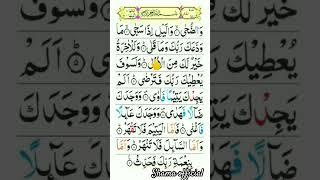 وَالضُّحٰى ۝ وَالَّيْلِ اِذَا سَجٰى ۝ مَا
وَدَّعَكَ رَبُّكَ وَمَا قَلٰى ۝ وَلَلْاٰخِرَةُ
خَيْرٌ لَّكَ مِنَ وَلَسَوْفَ
يُعْطِيْكَ رَبُّكَ فَتَرْضٰى ۝ اَلَمْ
يَجِدْكَ يَتِيْمًا فَاٰوٰى ۝ وَوَجَدَكَ
ضَآلًّا فَهَدٰى ۝ وَوَجَدَكَ عَآئِلًا
فَاَغْنٰى ۝ فَاَمَّا الْيَتِيْمَ فَلَا تَقْهَرْ ۝
وَاَمَّا السَّآئِلَ فَلَا تَنْهَرْ ۝ وَاَمَّا
بِنِعْمَةِ رَبِّكَ فَحَدِّثْ ۝
Shama official